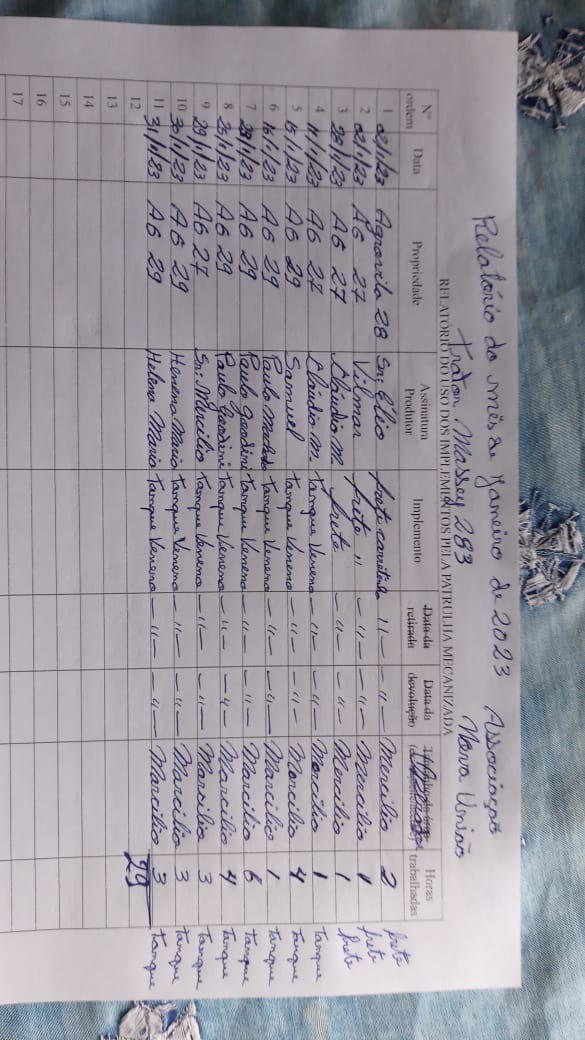 Relatório do mês de Janeiro de 2023 Associação
Trator Massey 283 Nova União
RELATÓRIO DO USO DOS IMPLEMENTOS PELA PATRULHA MECANIZADA
Nº ordem Data Propriedade Assinatura Produtor Implemento Data da retirada Data da devolução Horas trabalhadas
1 02/1/23 Agrovila 28 Sr: Élio frete carretinha 11 — — 11 — Mercilio 2 frete
2 02/1/23 A6 27 Vilmar frete 11 — 11 — — 11 — Mercilio 1 frete
3 28/1/23 A6 27 Cláudio M. frete — 11 — — 11 — Mercilio 1 frete
4 11/1/23 A6 27 Cláudio M. Tanque Veneno — 11 — — 11 — Marcilio 1 Tanque
5 15/1/23 A6 29 Samuel Tanque Veneno — 11 — — 11 — Marcilio 4 Tanque
6 16/1/23 A6 29 Paulo Tanque Veneno — 11 — — 11 — Marcilio 1 Tanque
7 23/1/23 A6 29 Paulo Tanque Veneno — 11 — — 11 — Marcilio 6 Tanque
8 25/1/23 A6 29 Paulo Tanque Veneno — 11 — — 11 — Marcilio 4 Tanque
9 29/1/23 A6 27 Sr: Mercilio Tanque Veneno — 11 — — 11 — Marcilio 3 Tanque
10 30/1/23 A6 29 Tanque Veneno — 11 — — 11 — Marcilio 3 Tanque
11 31/1/23 A6 29 Helena Maria Tanque Veneno — 11 — — 11 — Marcilio 3 Tanque
12 29
13
14
15
16
17